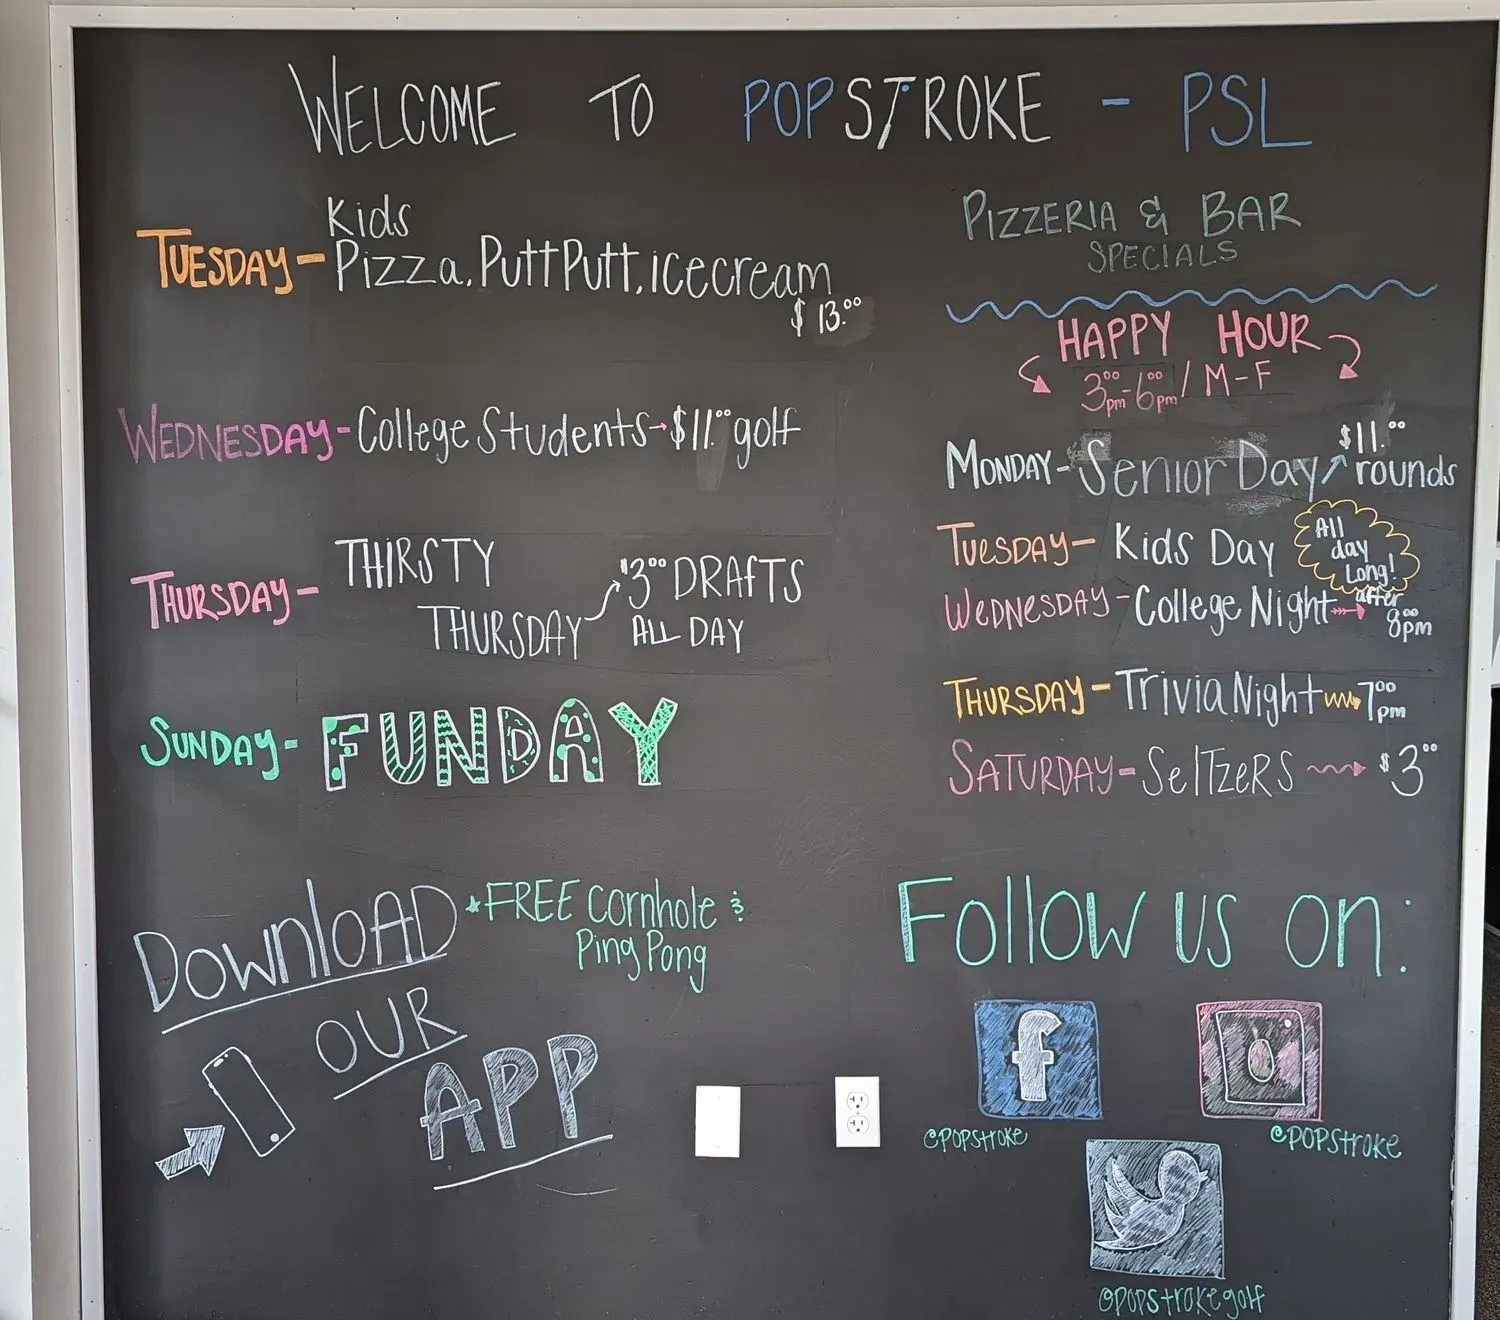 WELCOME TO POPSTROKE - PSL
Kids
TUESDAY - Pizza, PuttPutt, icecream
$13.00
WEDNESDAY - College Students → $11.00 golf
THURSDAY - THIRSTY
THURSDAY
$3.00 DRAFTS
ALL DAY
SUNDAY - FUNDAY
PIZZERIA & BAR
SPECIALS
HAPPY HOUR
3:00pm - 6:00pm / M-F
MONDAY - Senior Day $11.00
rounds
TUESDAY - Kids Day
All
day
Long!
WEDNESDAY - College Night → after
8:00pm
THURSDAY - Trivia Night 7:00pm
SATURDAY - SelTzeRS → $3.00
DownloAD
OUR
APP
*FREE Cornhole &
Ping Pong
Follow us on:
f
@POPStroke
@POPStroke
@popstrokegolf